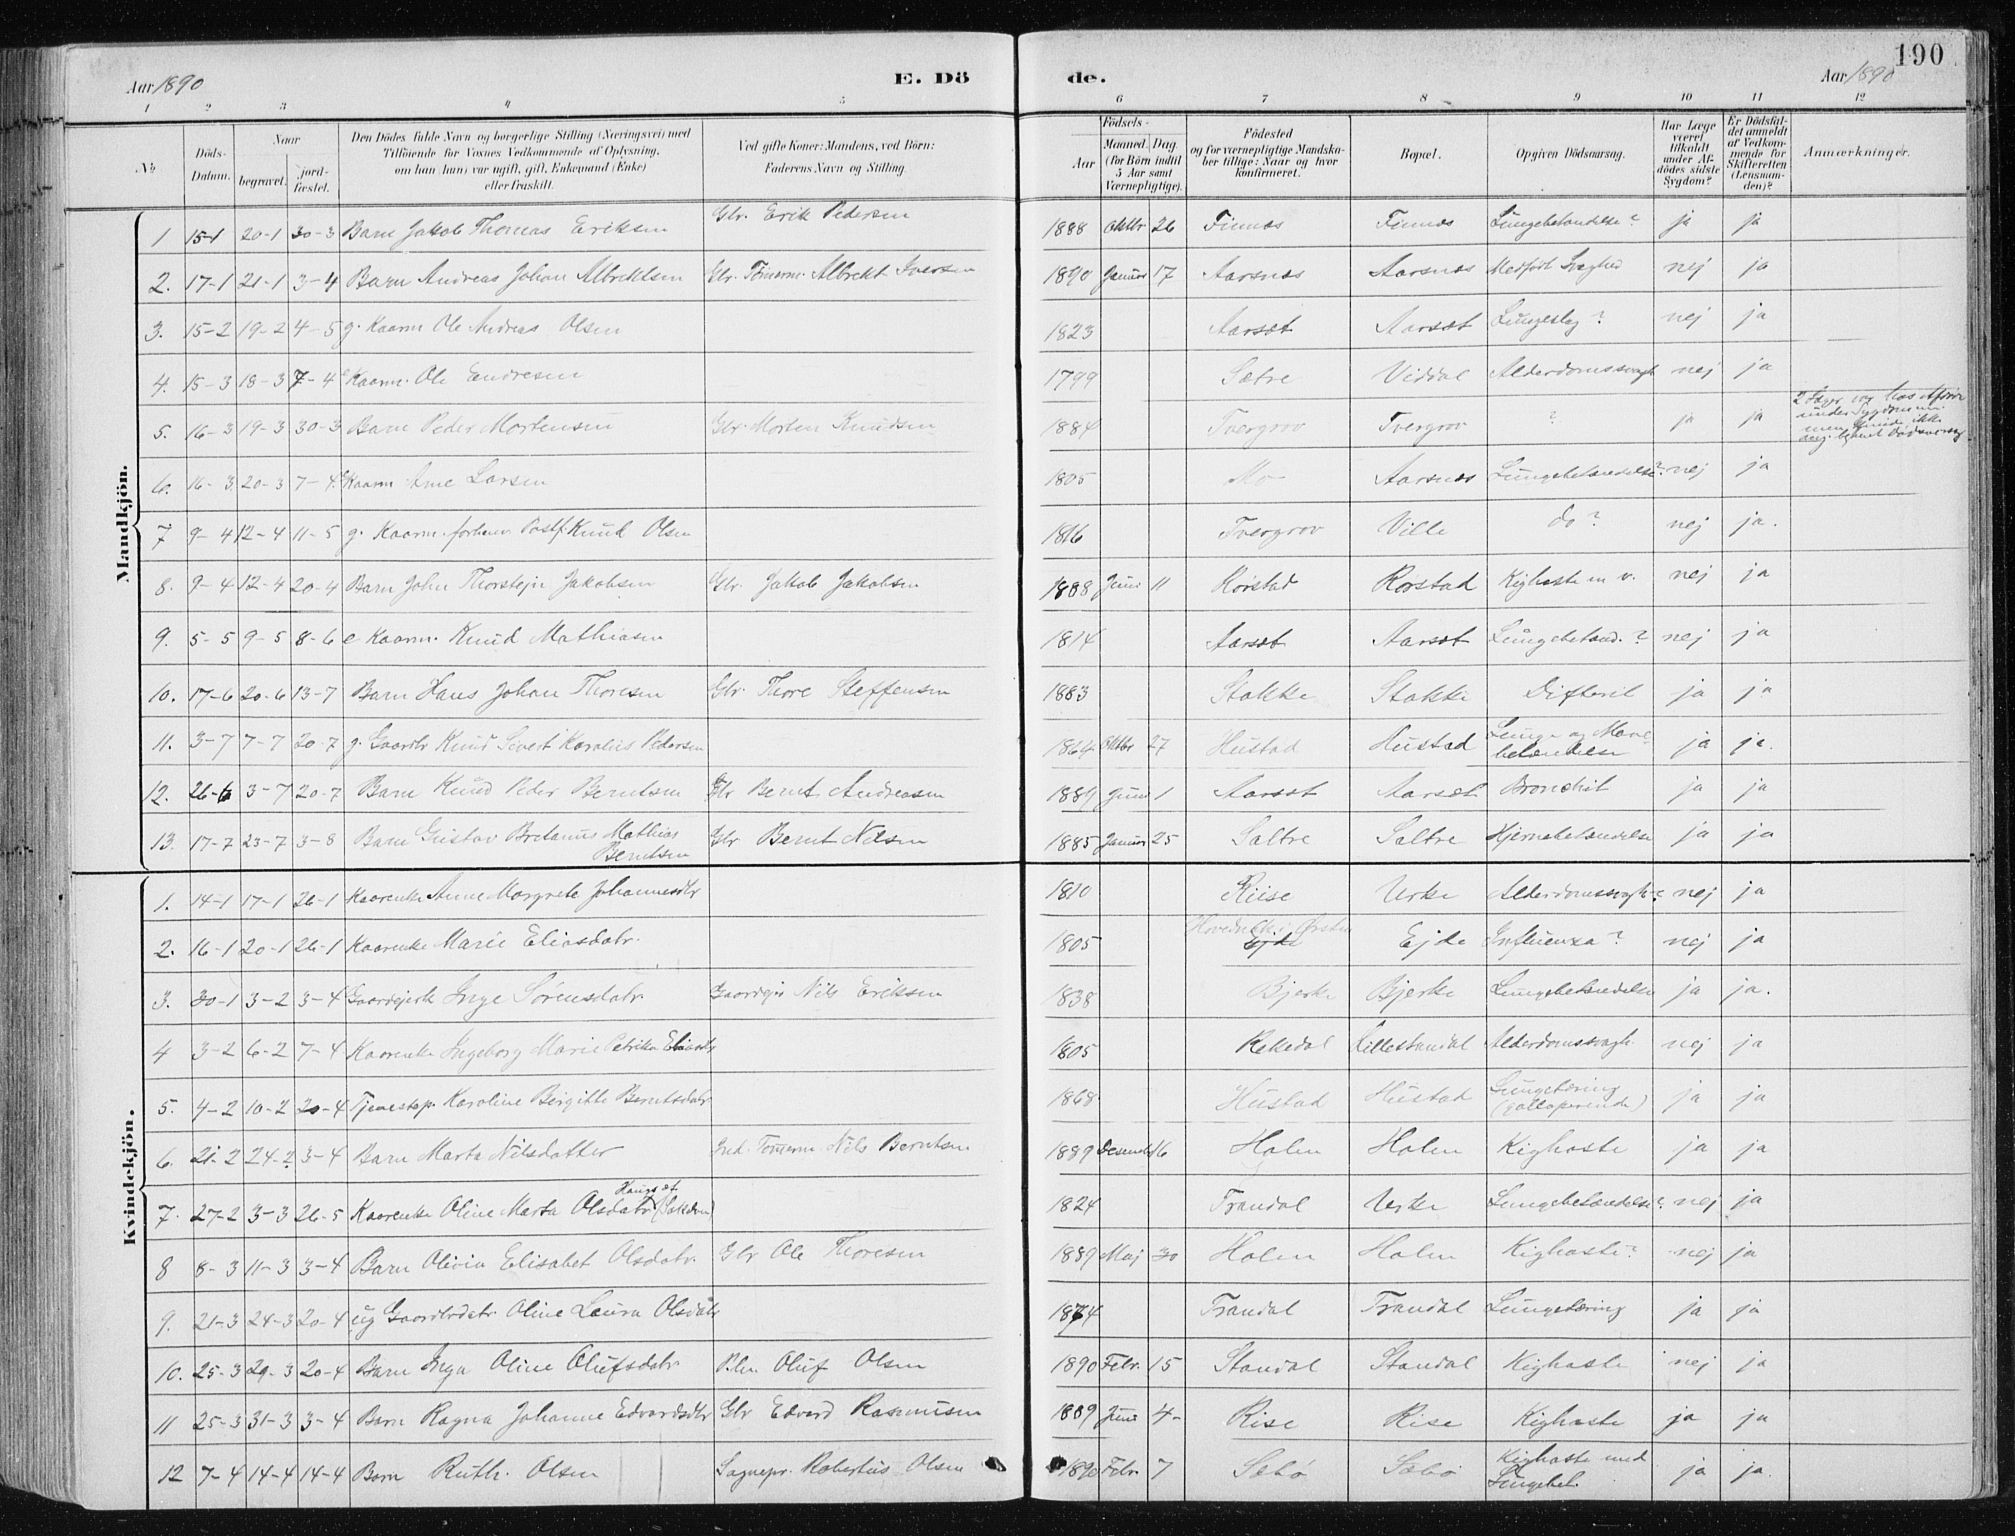 190
Aar 1890 E. Dö de. Aar 1890
1 2 3 4 5 6 7 8 9 10 11 12
No Döds-Datum. Naar begravet. jordfæstet. Den Dödes fulde Navn og borgerlige Stilling (Næringsvei) med Tilföiende for Voxnes Vedkommende af Oplysning, om han (hun) var ugift, gift, Enkemand (Enke) eller fraskilt. Ved gifte Koner: Mandens, ved Börn: Faderens Navn og Stilling. Födsels- Aar Maaned. Dag. (for Börn indtil 5 Aar samt Værnepligtige). Födested og for værnepligtige Mandskaber tillige: Naar og hvor konfirmeret. Bopæl. Opgiven Dödsaarsag. Har Læge været tilkaldt under Afdödes sidste Sygdom? Er Dödsfaldet anmeldt af Vedkommende for Skifteretten (Lensmanden)? Anmærkninger.
Mandkjön.
1 15-1 20-1 30-3 Barn Jakob Thomas Eriksen Gbr. Erik Pedersen 1888 Oktbr 26 Finnes Finnes Lungebetændelse? ja ja
2. 17-1 21-1 3-4 Barn Andreas Johan Albrektsen Gbr. Tömerm. Albrekt Iversen 1890 Januar 17 Aarsnes Aarsnes Medfödt Svaghed nej ja
3. 15-2 19-2 4-5 g. Kaarm. Ole Andreas Olsen 1823 Aarsæt Aarsæt Lungesyg? nej ja
4. 15-3 18-3 7-4 e Kaarm. Ole Endresen 1799 Sætre Viddal Alderdomssvagh nej ja
5. 16-3 19-3 30-3 Barn Peder Mortensen Gbr. Morten Knudsen 1884 Tvergrov Tvergrov ? ja ja 2 Læger var hos Afdöde under Sygdommen men kunde ikke
6. 16-3 20-3 7-4 e Kaarm Arne Larsen 1805 Mo Aarsnes Lungebetændelse? nej ja
7 9-4 12-4 11-5 g. Kaarm. forhenv. Postf. Knud Olsen 1816 Tvergrov Ville do? nej ja.
8. 9-4 12-4 20-4 Barn John Thorstejn Jakobsen Gbr. Jakob Jakobsen 1888 Juni 11 Rörstad Rorstad Kighoste m. v. nej ja
9. 5-5 9-5 8-6 e Kaarm. Knud Mathiasen 1814 Aarsæt Aarsæt Lungebetænd.? nej ja
10. 17-6 20-6 13-7 Barn Hans Johan Thoresen Gbr. Thore Steffensen 1883 Stokke Stokke Difterit ja ja
11. 3-7 7-7 20-7 g. Gaardbr Knud Sivert Karolius Pedersen 1864 Oktbr 27 Hustad Hustad Lunge og Mave betændelse ja ja.
12. 26-6 3-7 20-7 Barn Knud Peder Berntsen Gbr Bernt Andreasen 1889 Juni 1 Aarsæt Aarsæt Bronchit ja ja
13. 17-7 23-7 3-8 Barn Gustav Bretanus Mathias Berntsen Gbr Bernt Nilsen 1885 Januar 25 Saltre Saltre Hjernebetændelse ja ja
Kvindekjön.
1. 14-1 17-1 26-1 Kaarenke Anne Margrete Johannesdtr 1810 Riise Urke Alderdomssvagh? nej ja
2. 16-1 20-1 26-1 Kaarenke Marie Eliasdatr. 1805 Ejde Ejde Influenza? nej ja
3. 30-1 3-2 3-4 Gaardejersk Inge Sörensdatr Gaardejer Nils Eriksen 1838 Bjerke Bjerke Lungebetændelse ja ja.
4 3-2 6-2 7-4 Kaarenke Ingeborg Marie Petrika Eliasdtr 1805 Rekedal Lillestandal Alderdomssvagh. nej ja
5. 4-2 10-2 20-4 Tjenestep. Karoline Birgitte Berntsdatr 1868 Hustad Hustad Lungetæring (galloperende) ja ja
6. 21-2 24-2 3-4 Barn Marta Nilsdatter Ind. Tömerm. Nils Berntsen 1889 Desember 16 Holen Holen Kighoste ja ja
7. 27-2 3-3 26-5 Kaarenke Oline Marta Olsdatr 1824 Trandal Urke Lungebetændelse? nej ja
8 8-3 11-3 3-4 Barn Olivia Elisabet Olsdatr. Gbr Ole Thoresen 1889 Maj 30 Holen Holen Kighoste? nej ja
9. 21-3 24-3 20-4 ug Gaardbrdatr Oline Laura Olsdatr 1874 Trandal Trandal Lungetæring ja ja
10. 25-3 29-3 20-4 Barn Inga Oline Olufsdatr Oluf Olsen 1890 Febr. 15 Standal Standal Kighoste nej ja
11 25-3 31-3 3-4 Barn Ragna Johanne Edvardsdtr Gbr Edvard Rasmussen 1889 Juni 4 Rise Rise Kighoste ja ja
12 7-4 14-4 14-4 Barn Ruth. Olsen Sognepr. Robertus Olsen 1890 Febr. 7 Sæbö Sæbö Kighoste med Lungebet. ja ja.